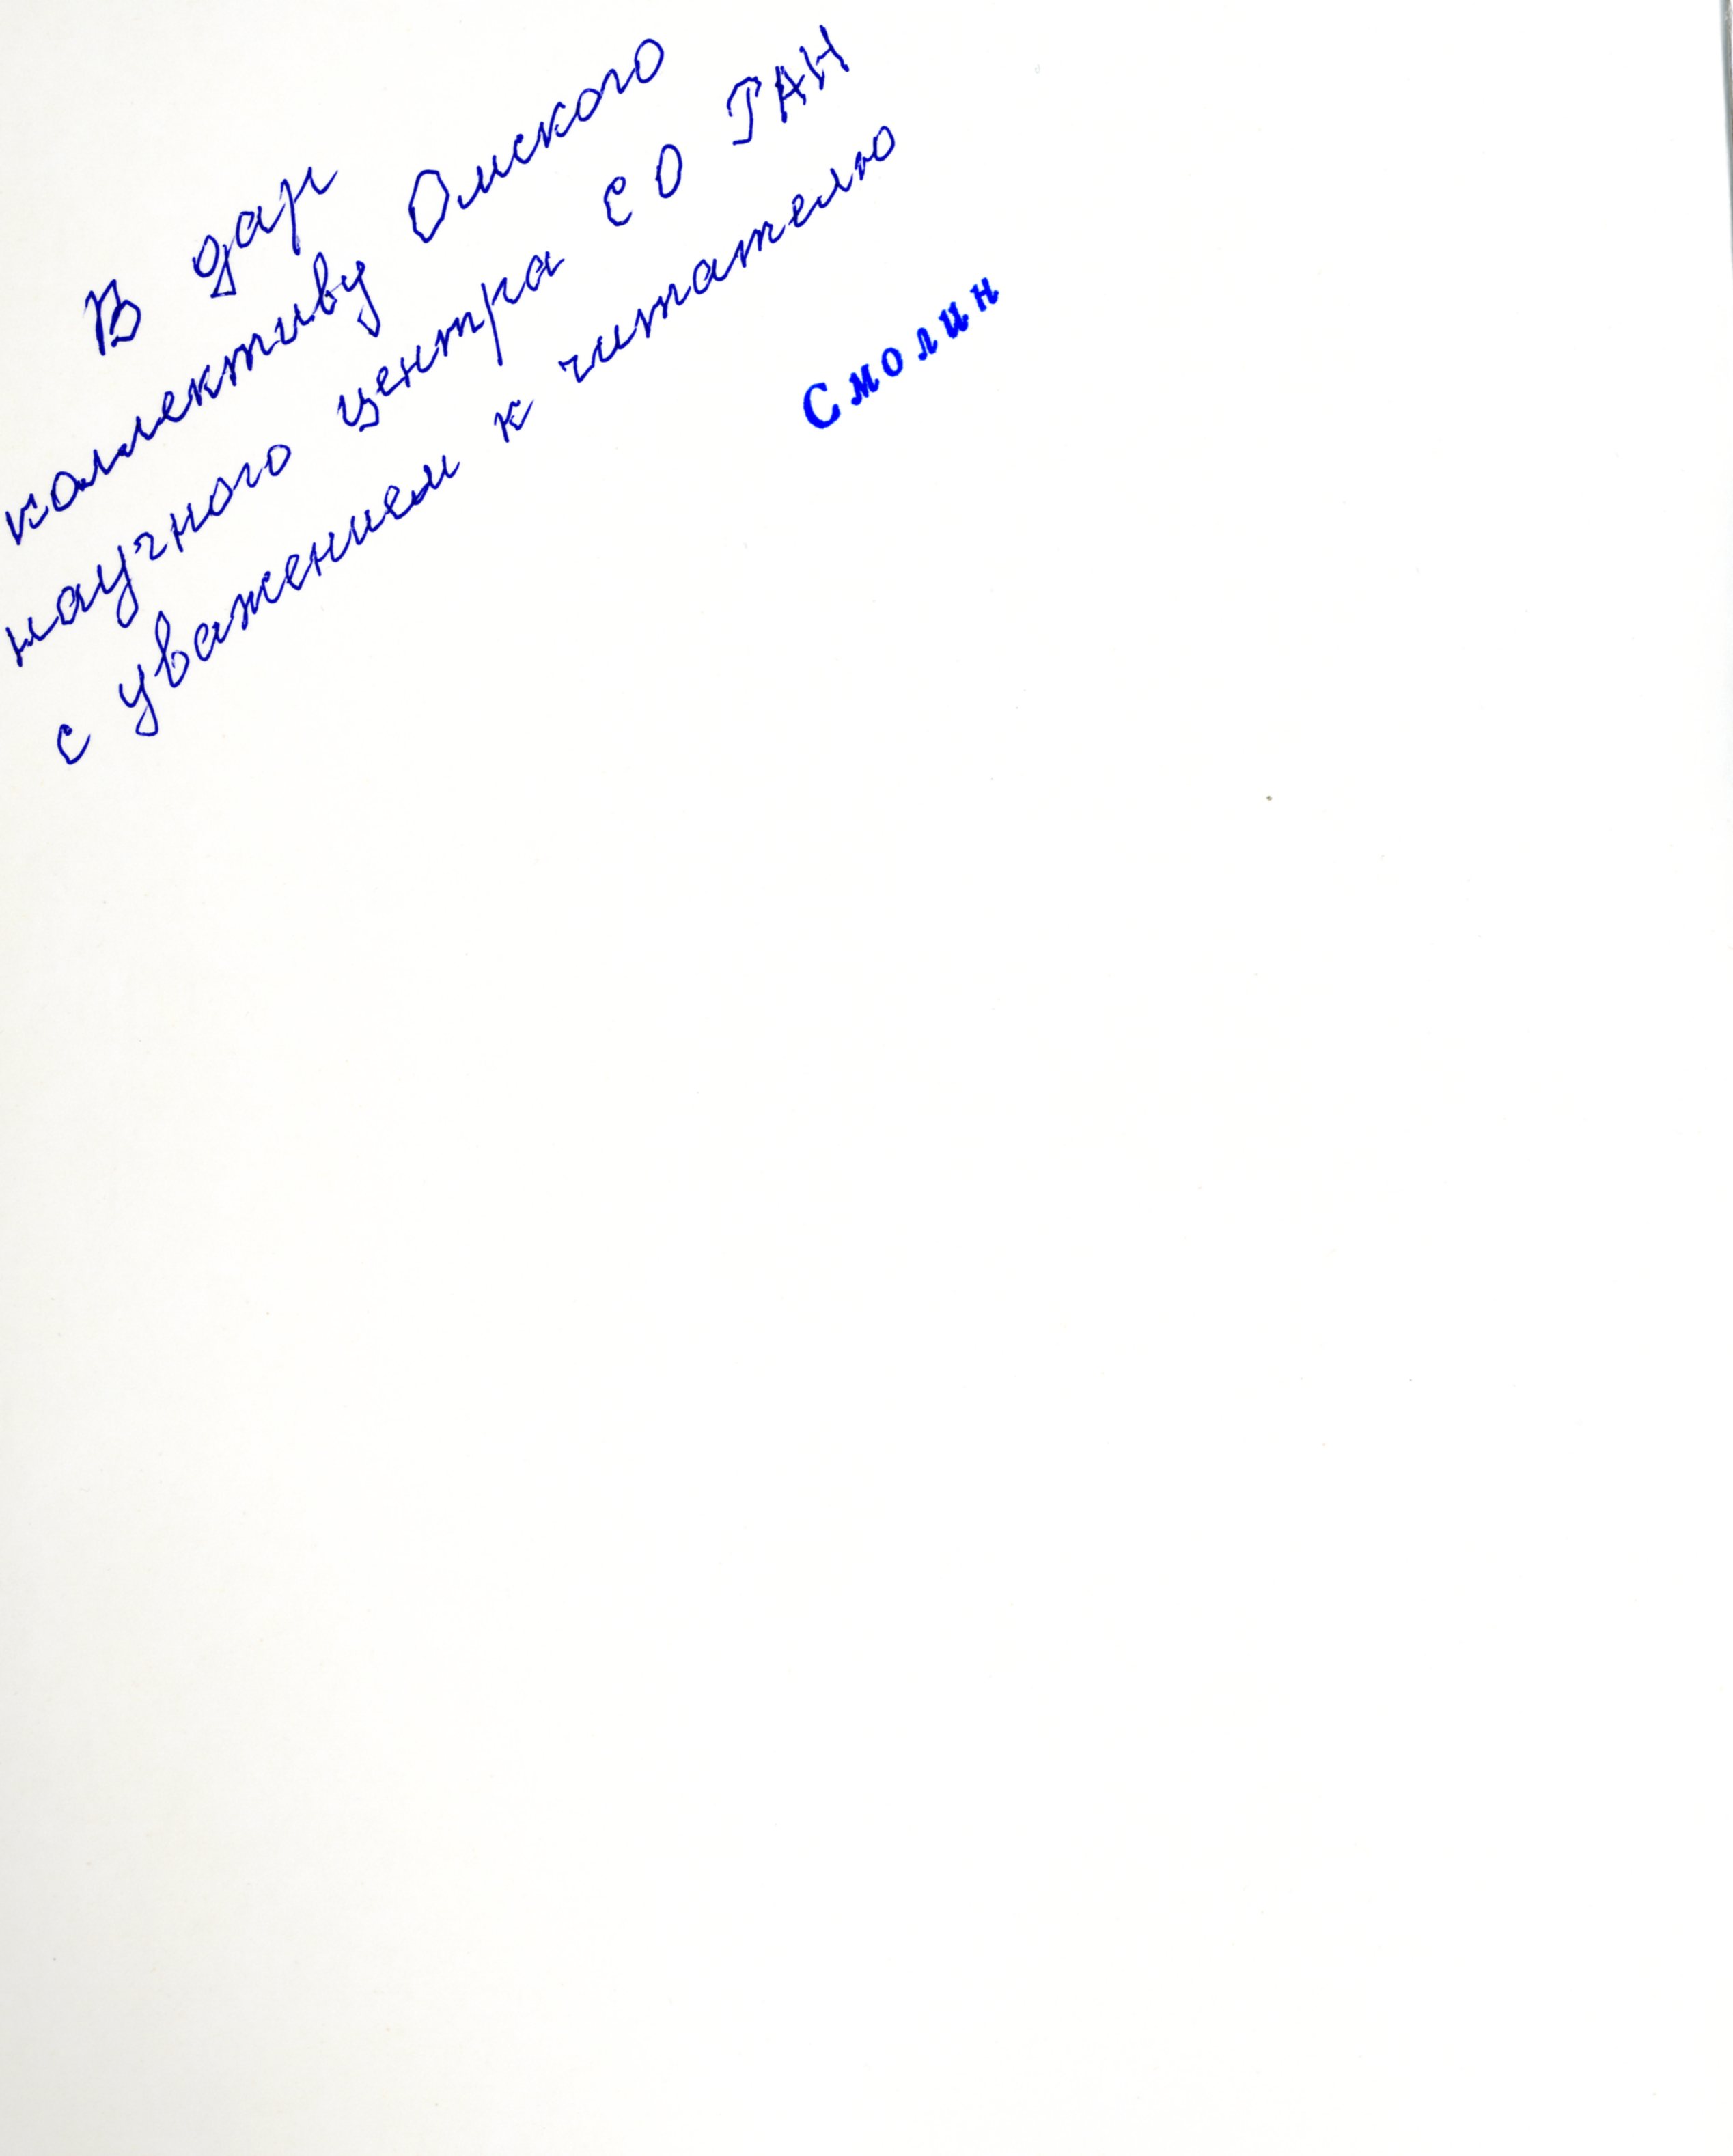 В дар
коллективу Омского
научного центра СО РАН
с уважением к читателю
Смолин